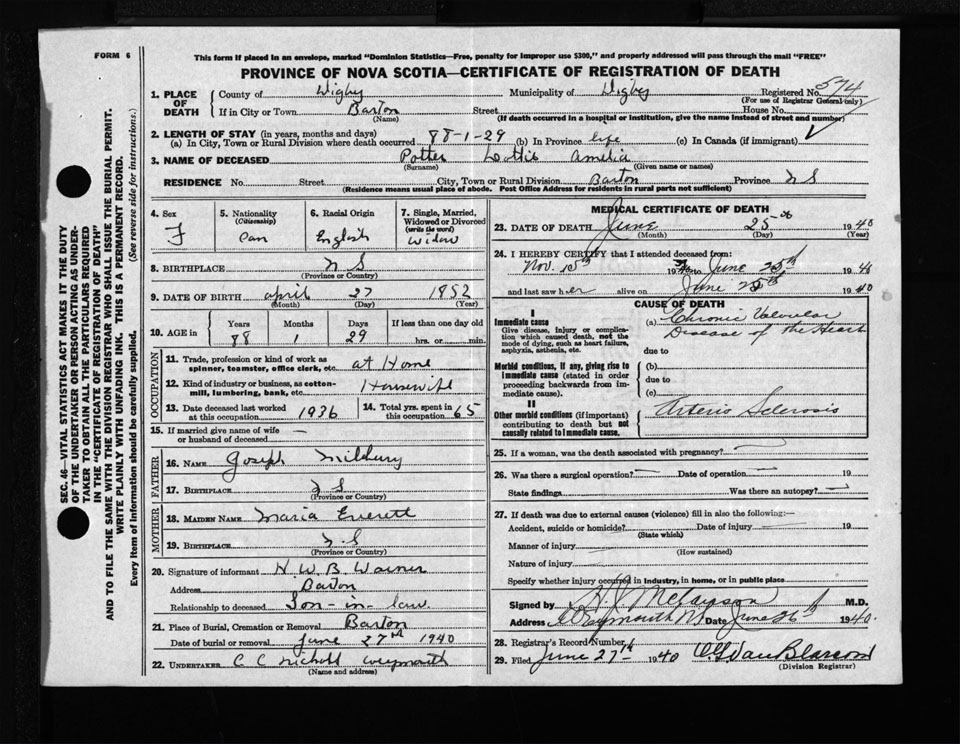 FORM 6
This form if placed in an envelope, marked "Dominion Statistics—Free, penalty for improper use $300," and properly addressed will pass through the mail "FREE"
PROVINCE OF NOVA SCOTIA—CERTIFICATE OF REGISTRATION OF DEATH
1. PLACE OF DEATH County of Digby Municipality of Digby Registered No. 574
(For use of Registrar General only)
If in City or Town Barton Street House No.
(Name) (If death occurred in a hospital or institution, give the name instead of street and number)
2. LENGTH OF STAY (in years, months and days)
(a) In City, Town or Rural Division where death occurred 88-1-29 (b) In Province life (c) In Canada (if immigrant)
3. NAME OF DECEASED Potter Lottie Amelia
(Surname) (Given name or names)
RESIDENCE No. Street City, Town or Rural Division Barton Province N S
(Residence means usual place of abode. Post Office Address for residents in rural parts not sufficient)
SEC. 46—VITAL STATISTICS ACT MAKES IT THE DUTY
OF THE UNDERTAKER OR PERSON ACTING AS UNDER-
TAKER TO OBTAIN ALL THE PARTICULARS REQUIRED
IN THE "CERTIFICATE OF REGISTRATION OF DEATH"
AND TO FILE THE SAME WITH THE DIVISION REGISTRAR WHO SHALL ISSUE THE BURIAL PERMIT.
WRITE PLAINLY WITH UNFADING INK. THIS IS A PERMANENT RECORD.
Every item of information should be carefully supplied. (See reverse side for instructions.)
4. Sex F
5. Nationality (Citizenship) Can
6. Racial Origin English
7. Single, Married, Widowed or Divorced (write the word) Widow
8. BIRTHPLACE N S
(Province or Country)
9. DATE OF BIRTH April 27 1852
(Month) (Day) (Year)
10. AGE in Years Months Days If less than one day old
88 1 29 hrs. or min.
OCCUPATION
11. Trade, profession or kind of work as spinner, teamster, office clerk, etc. at Home
12. Kind of industry or business, as cotton-mill, lumbering, bank, etc. Housewife
13. Date deceased last worked at this occupation 1936
14. Total yrs. spent in this occupation 65
15. If married give name of wife or husband of deceased —
FATHER
16. NAME Joseph Milbury
17. BIRTHPLACE N S
(Province or Country)
MOTHER
18. MAIDEN NAME Maria Everett
19. BIRTHPLACE N S
(Province or Country)
20. Signature of informant H W B Warner
Address Barton
Relationship to deceased Son-in-law
21. Place of Burial, Cremation or Removal Barton
Date of burial or removal June 27th 1940
22. UNDERTAKER C C Nichols Weymouth
(Name and address)
MEDICAL CERTIFICATE OF DEATH
23. DATE OF DEATH June 25th 1940
(Month) (Day) (Year)
24. I HEREBY CERTIFY that I attended deceased from:
Nov. 15th 19 to June 25th 1940
and last saw her alive on June 25th 1940
CAUSE OF DEATH
I
Immediate cause
Give disease, injury or complication which caused death, not the mode of dying, such as heart failure, asphyxia, asthenia, etc.
(a) Chronic Valvular
Disease of the Heart
due to
Morbid conditions, if any, giving rise to immediate cause (stated in order proceeding backwards from immediate cause).
(b)
due to
(c)
II
Other morbid conditions (if important) contributing to death but not causally related to immediate cause.
Arterio Sclerosis
25. If a woman, was the death associated with pregnancy? —
26. Was there a surgical operation? — Date of operation — 19
State findings Was there an autopsy? —
27. If death was due to external causes (violence) fill in also the following:—
Accident, suicide or homicide? Date of injury 19
(State which)
Manner of injury
(How sustained)
Nature of injury
Specify whether injury occurred in industry, in home, or in public place
Signed by M.D.
Address Weymouth NS Date June 26th 1940.
28. Registrar's Record Number
29. Filed June 27th 1940 VanBlarcom
(Division Registrar)